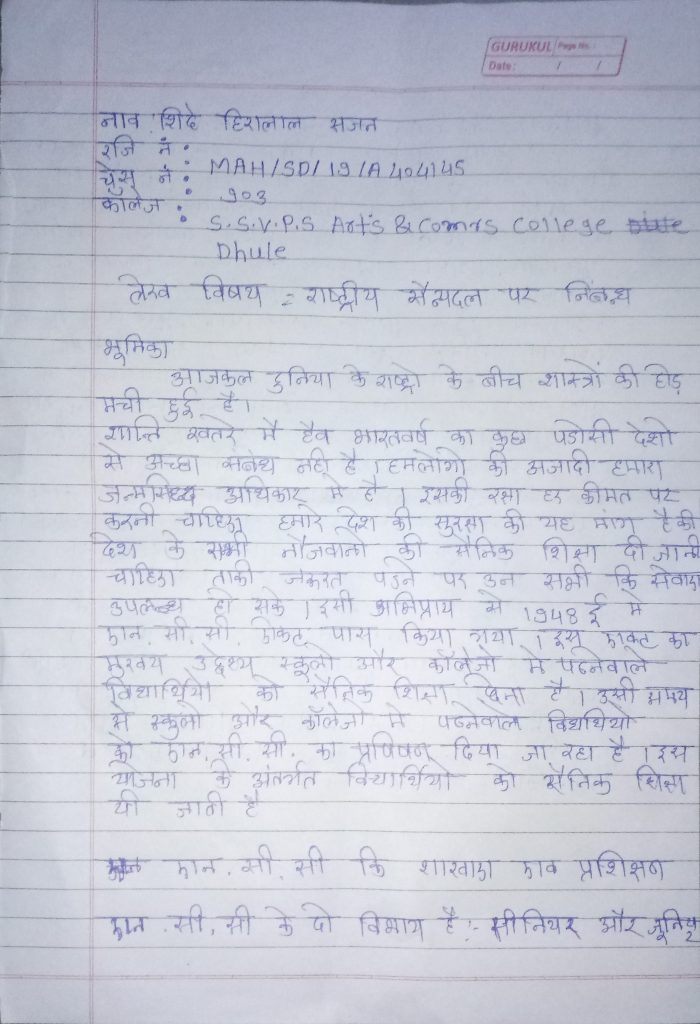 GURUKUL Page No.:
Date: / /
नाव : शिंदे हिरालाल भजन
रजि नं :
चेस नं : MAH/SD/19/A404145
कॉलेज : 903
S.S.V.P.S Art's & Comrs College
Dhule
लेख विषय = राष्ट्रीय सैन्यदल पर निबन्ध
भूमिका
आजकल दुनिया के राष्ट्रो के बीच शास्त्रों की होड़
मची हुई है।
शान्ति खतरे मै हैव भारतवर्ष का कुछ पडोसी देशो
से अच्छा सबंध नही है। हमलोगो की अजादी हमारा
जन्मसिध्द अधिकार मे है। इसकी रक्षा हर कीमत पर
करनी चाहिए हमारे देश की सुरक्षा की यह मांग है की
देश के सभी नौजवानो की सैनिक शिक्षा दी जानी
चाहिए ताकी जरूरत पडने पर उन सभी कि सेवाए
उपलब्ध हो सके। इसी अभिप्राय से 1948 ई मे
एन. सी. सी. एक्ट पास किया गया। इस एक्ट का
मुख्य उद्देश्य स्कूलो और कॉलेजो मे पढनेवाले
विद्यार्थियो को सैनिक शिक्षा देना है। उसी समय
से स्कुलो और कॉलेजो मे पढनेवाले विद्यथियो
को एन. सी. सी. का प्रषिषन दिया जा रहा है। इस
योजना के अंतर्गत विद्यार्थियो को सैनिक शिक्षा
यी जाती है
एन. सी. सी कि शाखाए एव प्रशिक्षन
एन. सी. सी के दो विभाग है :- सीनियर और जूनियर